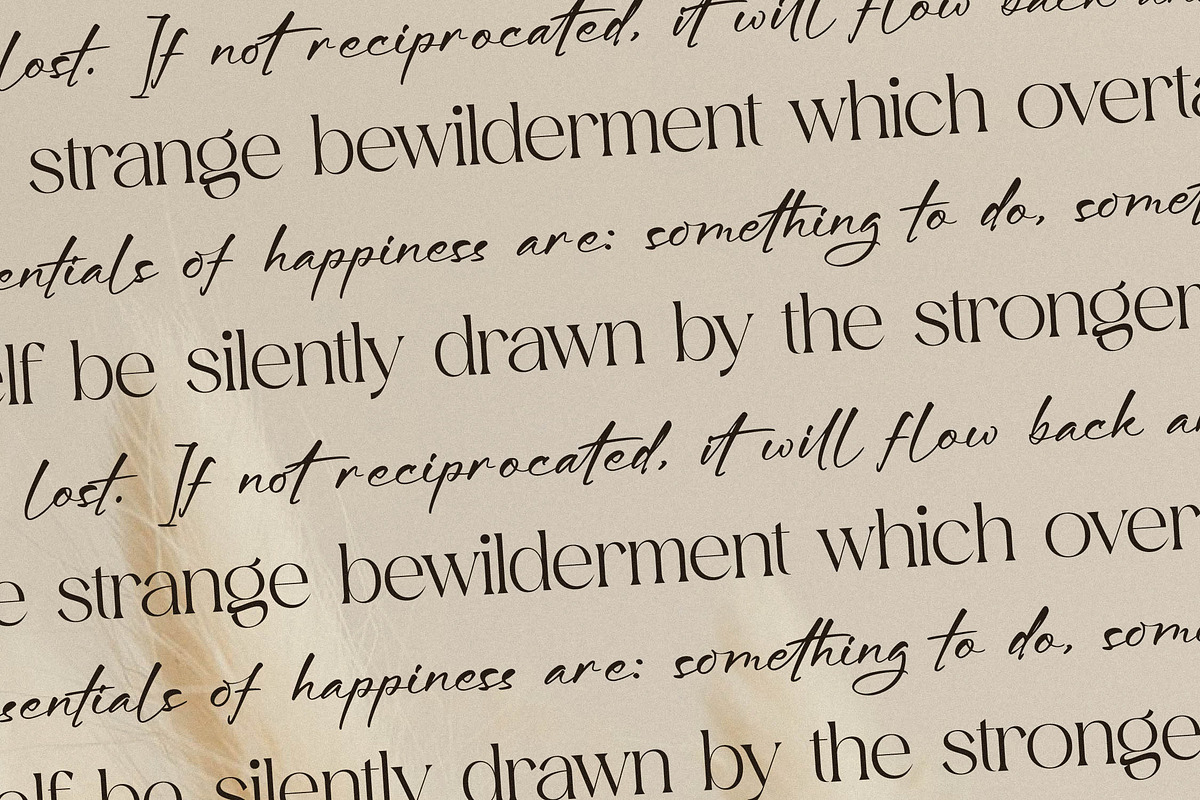 lost. If not reciprocated, it will flow back and
strange bewilderment which overta
entials of happiness are: something to do, somet
elf be silently drawn by the stronger
lost. If not reciprocated, it will flow back an
e strange bewilderment which over
sentials of happiness are: something to do, some
elf be silently drawn by the stronge